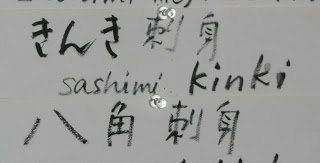 きんき刺身
sashimi kinki
八角刺身